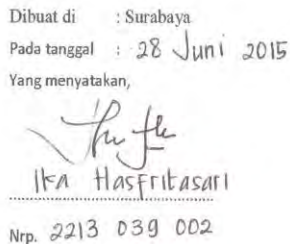 Dibuat di : Surabaya
Pada tanggal : 28 Juni 2015
Yang menyatakan,
Ika Hasfritasari
Nrp. 2213 039 002